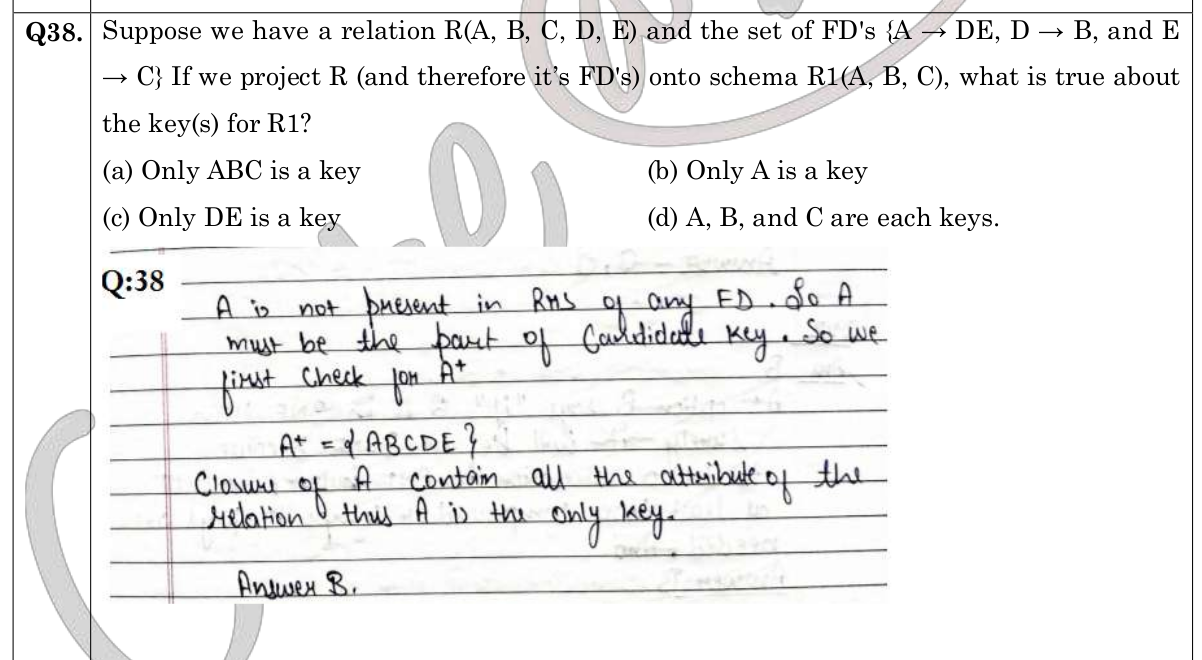 Q38. Suppose we have a relation R(A, B, C, D, E) and the set of FD's {A → DE, D → B, and E
→ C} If we project R (and therefore it's FD's) onto schema R1(A, B, C), what is true about
the key(s) for R1?
(a) Only ABC is a key (b) Only A is a key
(c) Only DE is a key (d) A, B, and C are each keys.
Q:38
A is not present in RHS of any FD. So A
must be the part of Candidate key. So we
first Check for A+
A+ = {ABCDE}
Closure of A contain all the attribute of the
relation thus A is the only key.
Answer B.